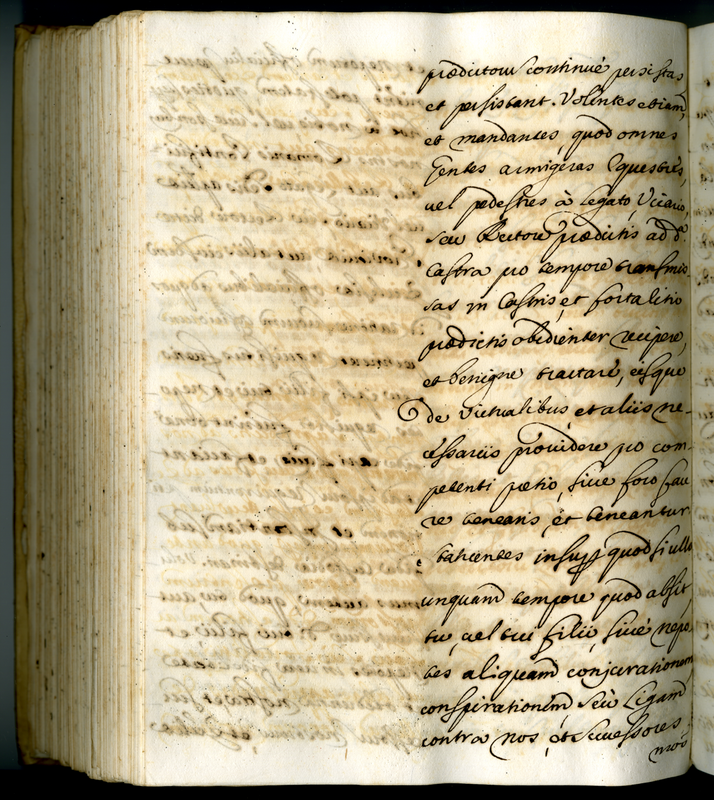 prædictorum continué persistas
et persistant. Volentes etiam,
et mandantes, quod omnes
Gentes armigeras Equestres,
vel pedestres à Legato, Vicario,
seu Rectore prædictis ad d.ª
Castra pro tempore transmis
sas in Castris, et fortalitio
prædictis obedienter recipere,
et benigne tractare, eisque
de Victualibus, et aliis ne-
cessariis providere pro com-
petenti pretio, sive foro fau
re tenearis, et teneantur
statientes insup quod si ullo
unquam tempore quod absit
tu, vel tui filii, sivé nepo
tes aliquam conjurationem
conspirationem seù Ligam
contra nos, et Successores
nros